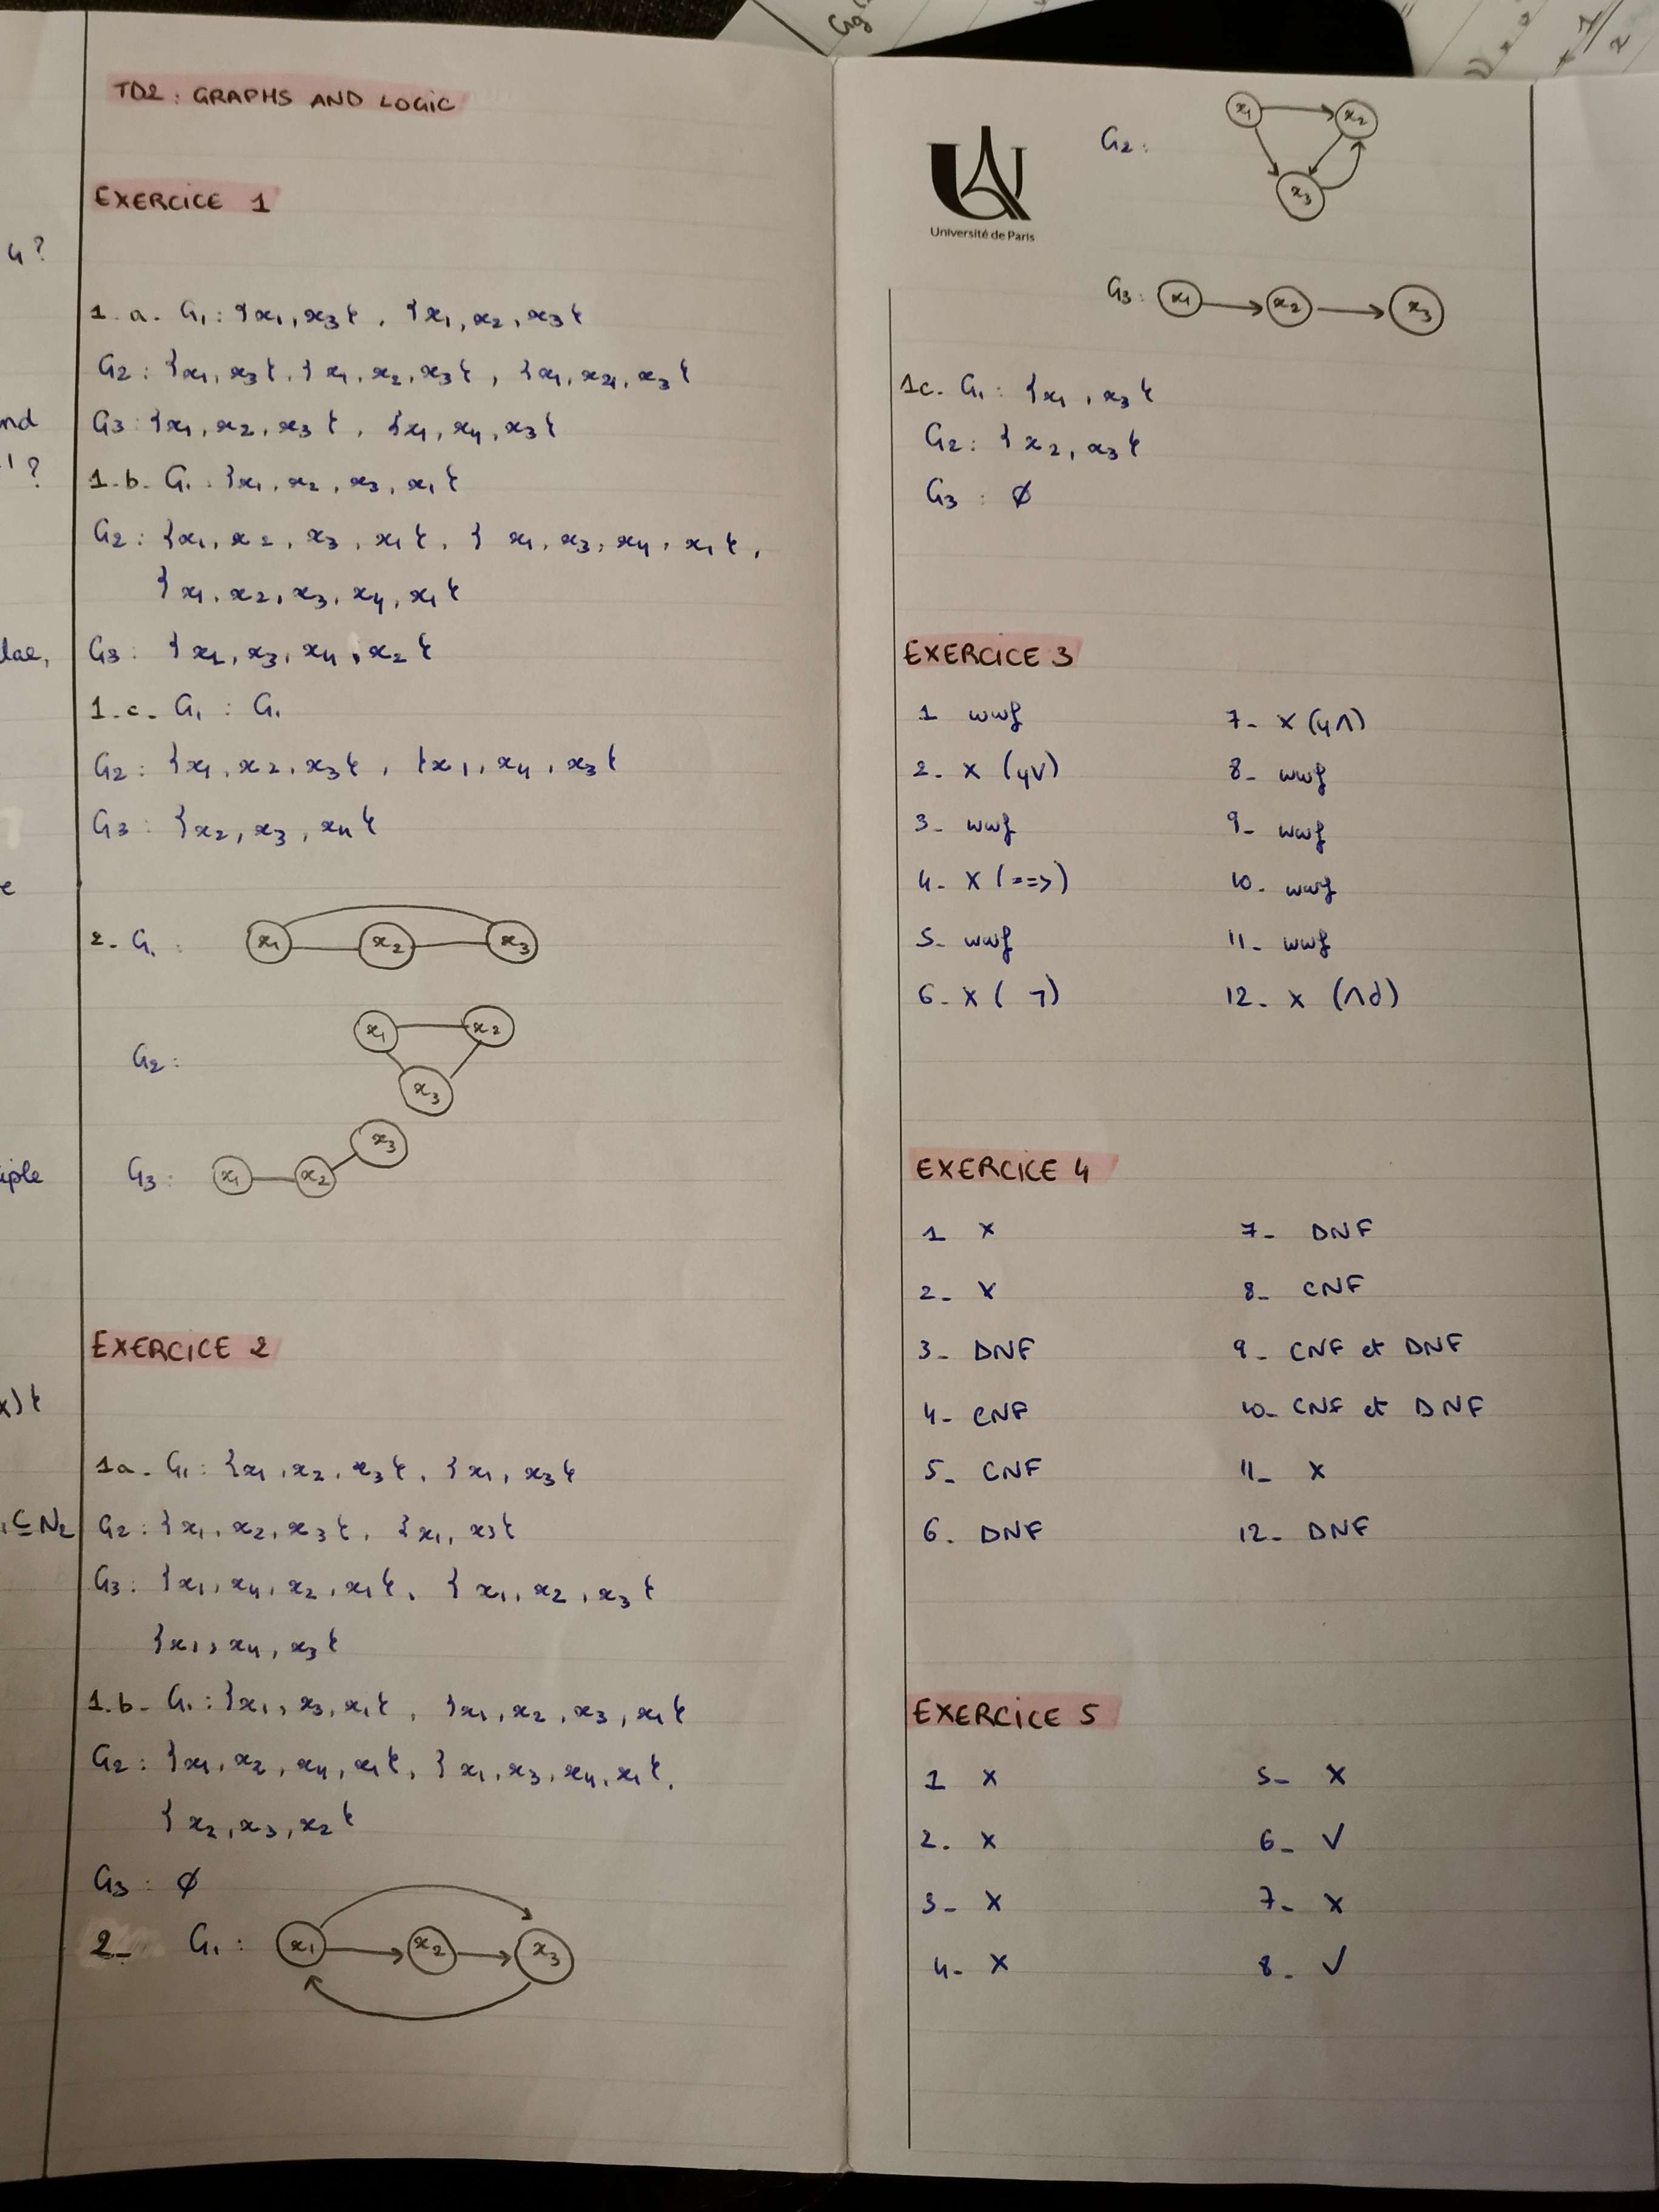 TD2 : GRAPHS AND LOGIC
EXERCICE 1
1.a. G1 : {x1, x3}, {x1, x2, x3}
G2 : {x1, x3}, {x1, x2, x3}, {x1, x4, x3}
G3 : {x1, x2, x3}, {x1, x4, x3}
1.b. G1 : {x1, x2, x3, x1}
G2 : {x1, x2, x3, x1}, {x1, x3, x4, x1},
{x1, x2, x3, x4, x1}
G3 : {x2, x3, x4, x2}
1.c. G1 : G1
G2 : {x1, x2, x3}, {x1, x4, x3}
G3 : {x2, x3, x4}
2. G1 : x1 x2 x3
G2 : x1 x2
x3
G3 : x1 x2 x3
EXERCICE 2
1a. G1 : {x1, x2, x3}, {x1, x3}
G2 : {x1, x2, x3}, {x1, x3}
G3 : {x1, x4, x2, x1}, {x1, x2, x3}
{x1, x4, x3}
1.b- G1 : {x1, x3, x1}, {x1, x2, x3, x1}
G2 : {x1, x2, x4, x1}, {x1, x3, x4, x1},
{x2, x3, x2}
G3 : ∅
2- G1 : x1 x2 x3
Université de Paris
G2 : x1 x2
x3
G3 : x1 x2 x3
1c. G1 : {x1, x3}
G2 : {x2, x3}
G3 : ∅
EXERCICE 3
1 wwf
2. x (y∨)
3- wwf
4- x (==>)
5- wwf
6. x ( ¬)
7- x (y∧)
8- wwf
9- wwf
10. wwf
11- wwf
12. x (∧d)
EXERCICE 4
1 x
2- x
3- DNF
4- CNF
5- CNF
6. DNF
7- DNF
8- CNF
9- CNF et DNF
10- CNF et DNF
11- x
12- DNF
EXERCICE 5
1 x
2. x
3- x
4- x
5- x
6- √
7- x
8- √
4?
nd
1 ?
lae,
e
iple
x)}
⊆ N2